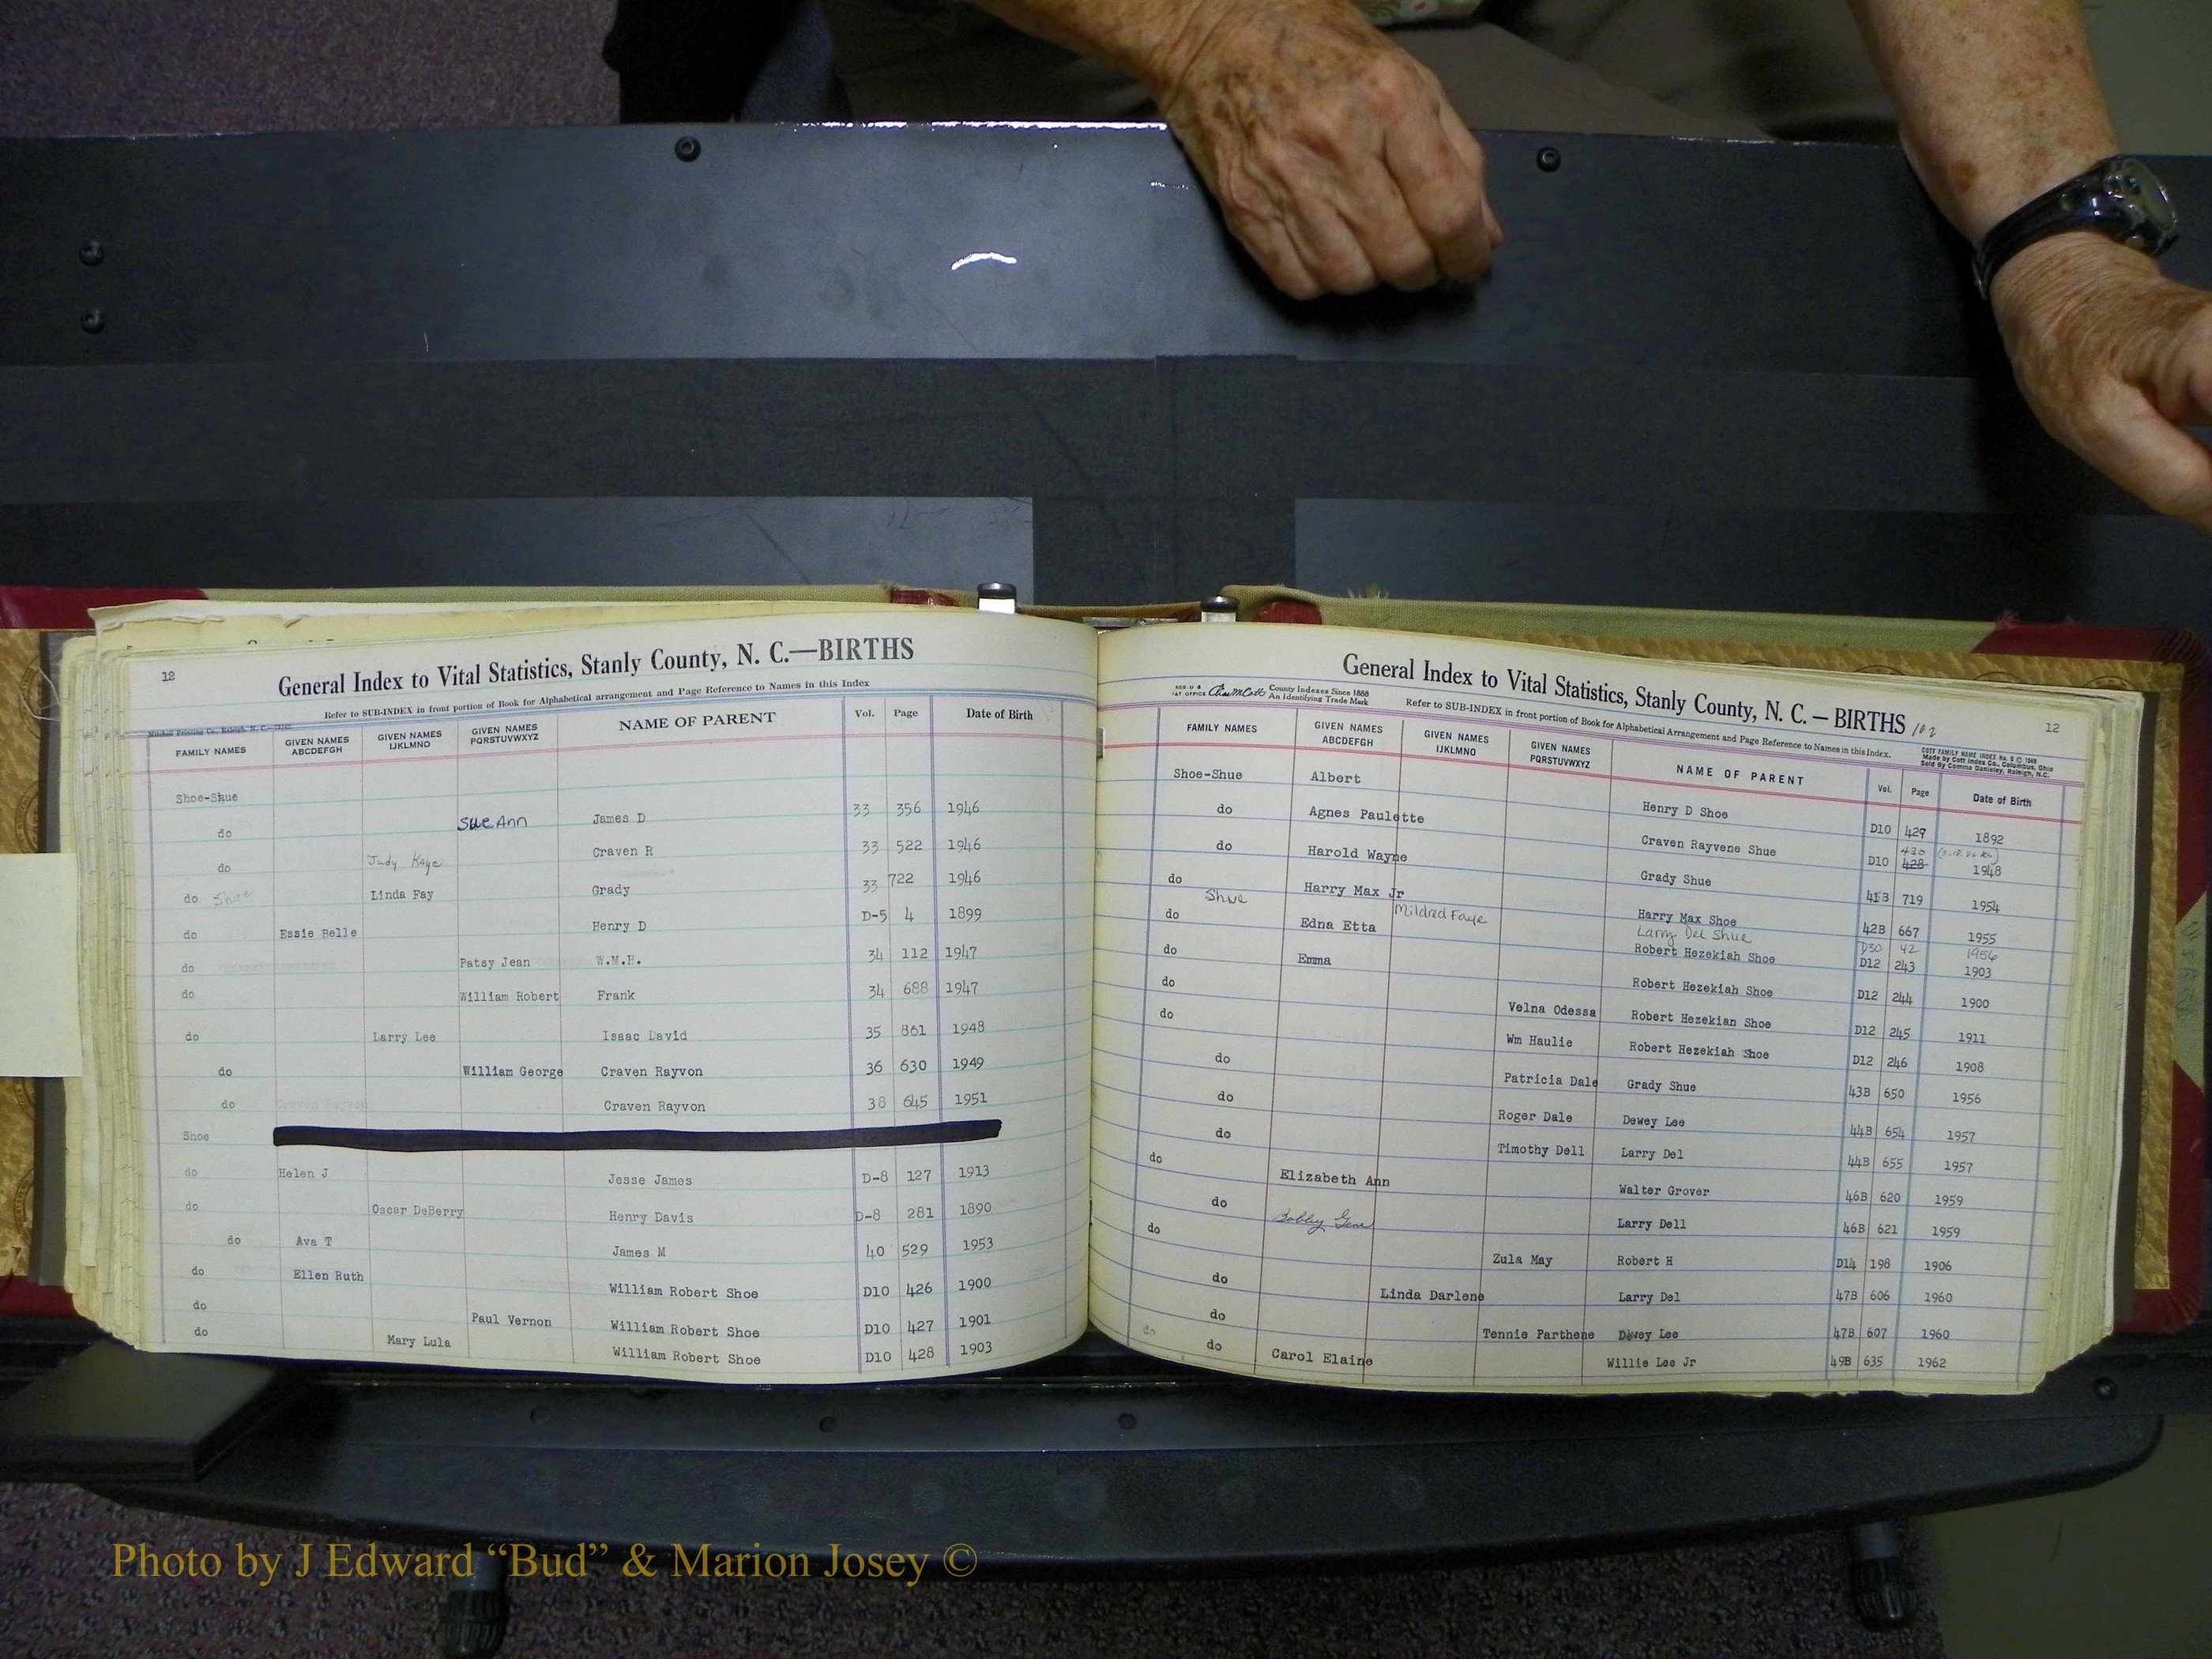 12
General Index to Vital Statistics, Stanly County, N. C.—BIRTHS
Refer to SUB-INDEX in front portion of Book for Alphabetical arrangement and Page Reference to Names in this Index
Mitchell Printing Co., Raleigh, N. C.
FAMILY NAMES GIVEN NAMES ABCDEFGH GIVEN NAMES IJKLMNO GIVEN NAMES PQRSTUVWXYZ NAME OF PARENT Vol. Page Date of Birth
Shoe-Shue Sue Ann James D 33 356 1946
do Judy Kaye Craven R 33 522 1946
do Linda Fay Grady 33 722 1946
do Shue Essie Belle Henry D D-5 4 1899
do Patsy Jean W.M.H. 34 112 1947
do William Robert Frank 34 688 1947
do Larry Lee Isaac David 35 861 1948
do William George Craven Rayvon 36 630 1949
do Craven Rayvon Craven Rayvon 38 645 1951
Shoe
do Helen J Jesse James D-8 127 1913
do Oscar DeBerry Henry Davis D-8 281 1890
do Ava T James M 40 529 1953
do Ellen Ruth William Robert Shoe D10 426 1900
do Paul Vernon William Robert Shoe D10 427 1901
do Mary Lula William Robert Shoe D10 428 1903
General Index to Vital Statistics, Stanly County, N. C. — BIRTHS 102
12
REG. U S PAT OFFICE County Indexes Since 1888 An Identifying Trade Mark
Refer to SUB-INDEX in front portion of Book for Alphabetical Arrangement and Page Reference to Names in this Index.
COTT FAMILY NAME INDEX
Made by Cott Index Co., Columbus, Ohio
Sold By Comma Danieley, Raleigh, N.C.
FAMILY NAMES GIVEN NAMES ABCDEFGH GIVEN NAMES IJKLMNO GIVEN NAMES PQRSTUVWXYZ NAME OF PARENT Vol. Page Date of Birth
Shoe-Shue Albert Henry D Shoe D10 429 1892
do Agnes Paulette Craven Rayvene Shue D10 430 428 1948
do Harold Wayne Grady Shue 41B 719 1954
do Harry Max Jr Harry Max Shoe 42B 667 1955
Shue Mildred Faye Larry Del Shue D30 42 1956
do Edna Etta Robert Hezekiah Shoe D12 243 1903
do Emma Robert Hezekiah Shoe D12 244 1900
do Velna Odessa Robert Hezekian Shoe D12 245 1911
do Wm Haulie Robert Hezekiah Shoe D12 246 1908
do Patricia Dale Grady Shue 43B 650 1956
do Roger Dale Dewey Lee 44B 654 1957
do Timothy Dell Larry Del 44B 655 1957
do Elizabeth Ann Walter Grover 46B 620 1959
do Bobby Gene Larry Dell 46B 621 1959
do Zula May Robert H D14 198 1906
do Linda Darlene Larry Del 47B 606 1960
do Tennie Parthene Dewey Lee 47B 607 1960
do Carol Elaine Willie Lee Jr 49B 635 1962
Photo by J Edward “Bud” & Marion Josey ©